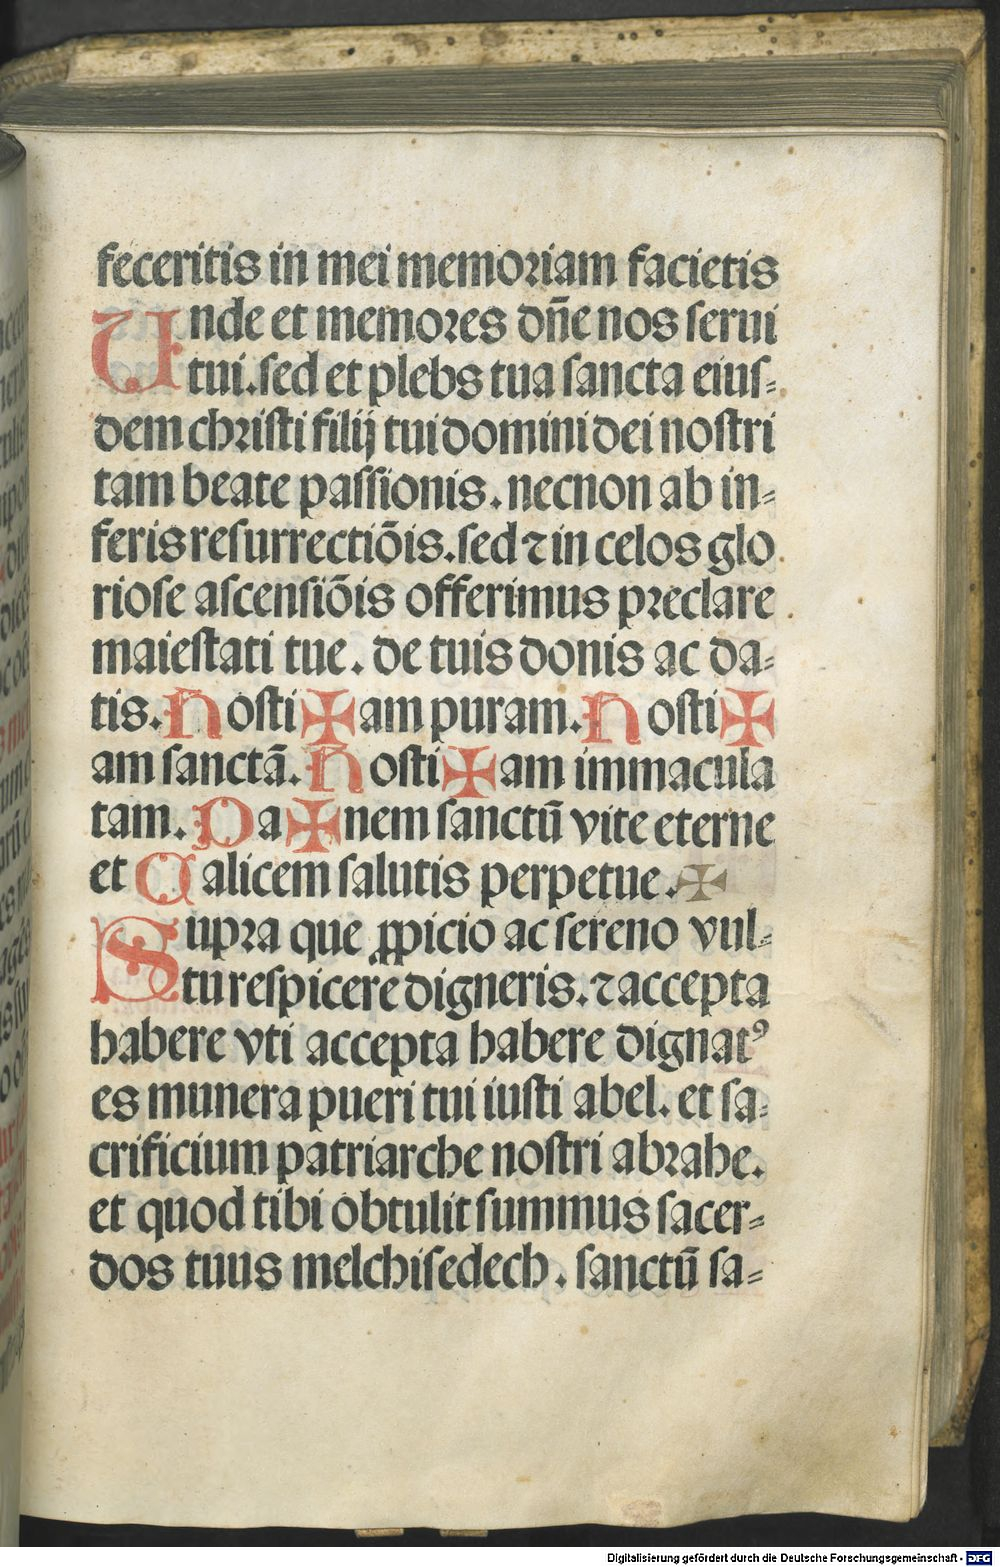 feceritis in mei memoriam facietis
Unde et memores dn̄e nos serui
tui. sed et plebs tua sancta eius⸗
dem christi filij tui domini dei nostri
tam beate passionis. necnon ab in⸗
feris resurrectiōis. sed ⁊ in celos glo
riose ascensiōis offerimus preclare
maiestati tue. de tuis donis ac da⸗
tis. Hosti✠am puram. Hosti✠
am sanctā. Hosti✠am immacula
tam. Pa✠nem sanctū vite eterne
et Calicem salutis perpetue. ✠
Supra que ꝓpicio ac sereno vul⸗
tu respicere digneris. ⁊ accepta
habere vti accepta habere dignatꝰ
es munera pueri tui iusti abel. et sa⸗
crificium patriarche nostri abrahe.
et quod tibi obtulit summus sacer⸗
dos tuus melchisedech. sanctū sa⸗
Digitalisierung gefördert durch die Deutsche Forschungsgemeinschaft - DFG